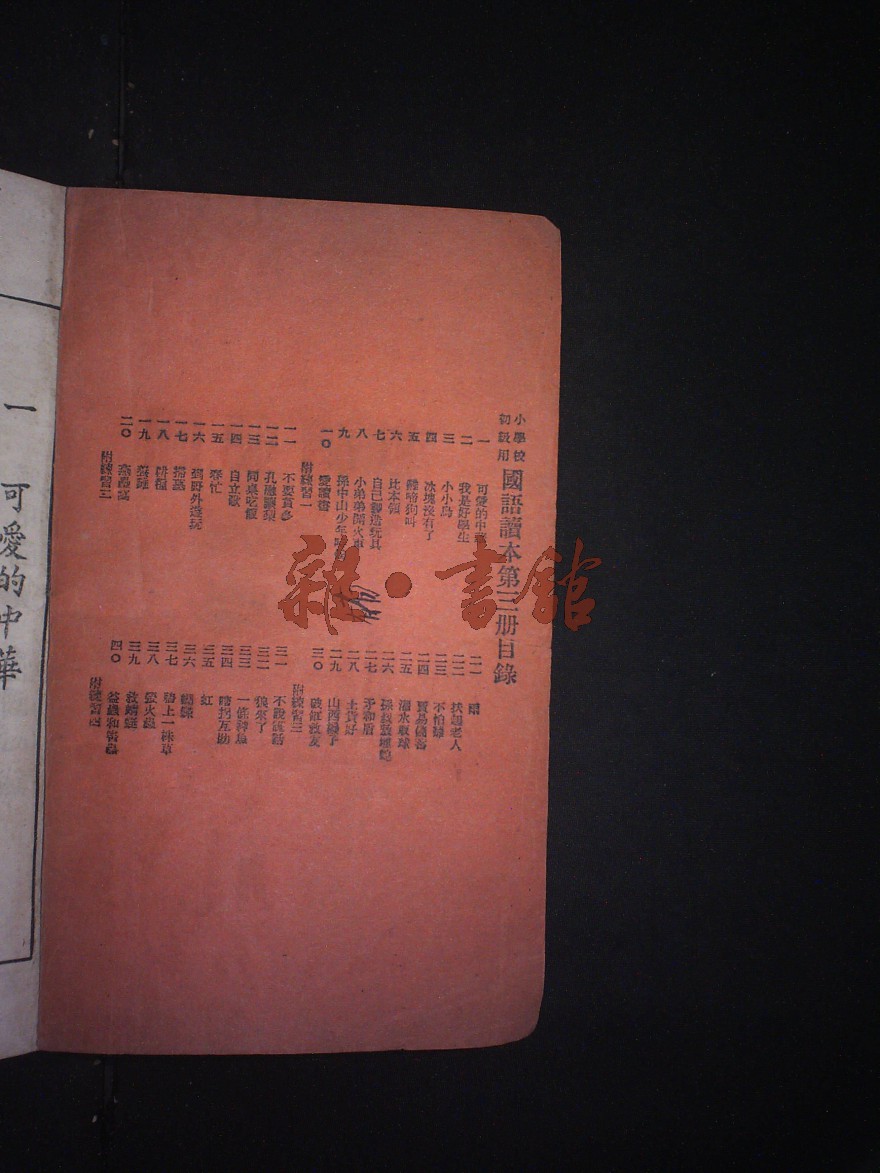 小學校
初級用
國語讀本第三册目錄
一 可愛的中華
二 我是好學生
三 小小鳥
四 冰塊沒有了
五 雞啼狗叫
六 比本領
七 自己製造玩具
八 小弟弟開火車
九 孫中山少年時
一〇 愛讀書
附練習一
一一 不要貪多
一二 孔融讓梨
一三 同桌吃飯
一四 自立歌
一五 春忙
一六 到野外遊玩
一七 掃墓
一八 耕種
一九 養雞
二〇 燕
附練習二
二一 晴
二二 扶起老人
二三 不怕
二四 貿易
二五 灌水取球
二六 孫叔敖埋蛇
二七 矛和盾
二八 土貨好
二九 山西騾子
三〇 破缸救友
附練習三
三一 不說謊話
三二 狼來了
三三 一條
三四 瞎拐互助
三五 紅
三六 蝴蝶
三七 牆上一株草
三八 螢火蟲
三九 救螞蟻
四〇 益蟲和害蟲
附練習四
雜·書館
一 可愛的中華